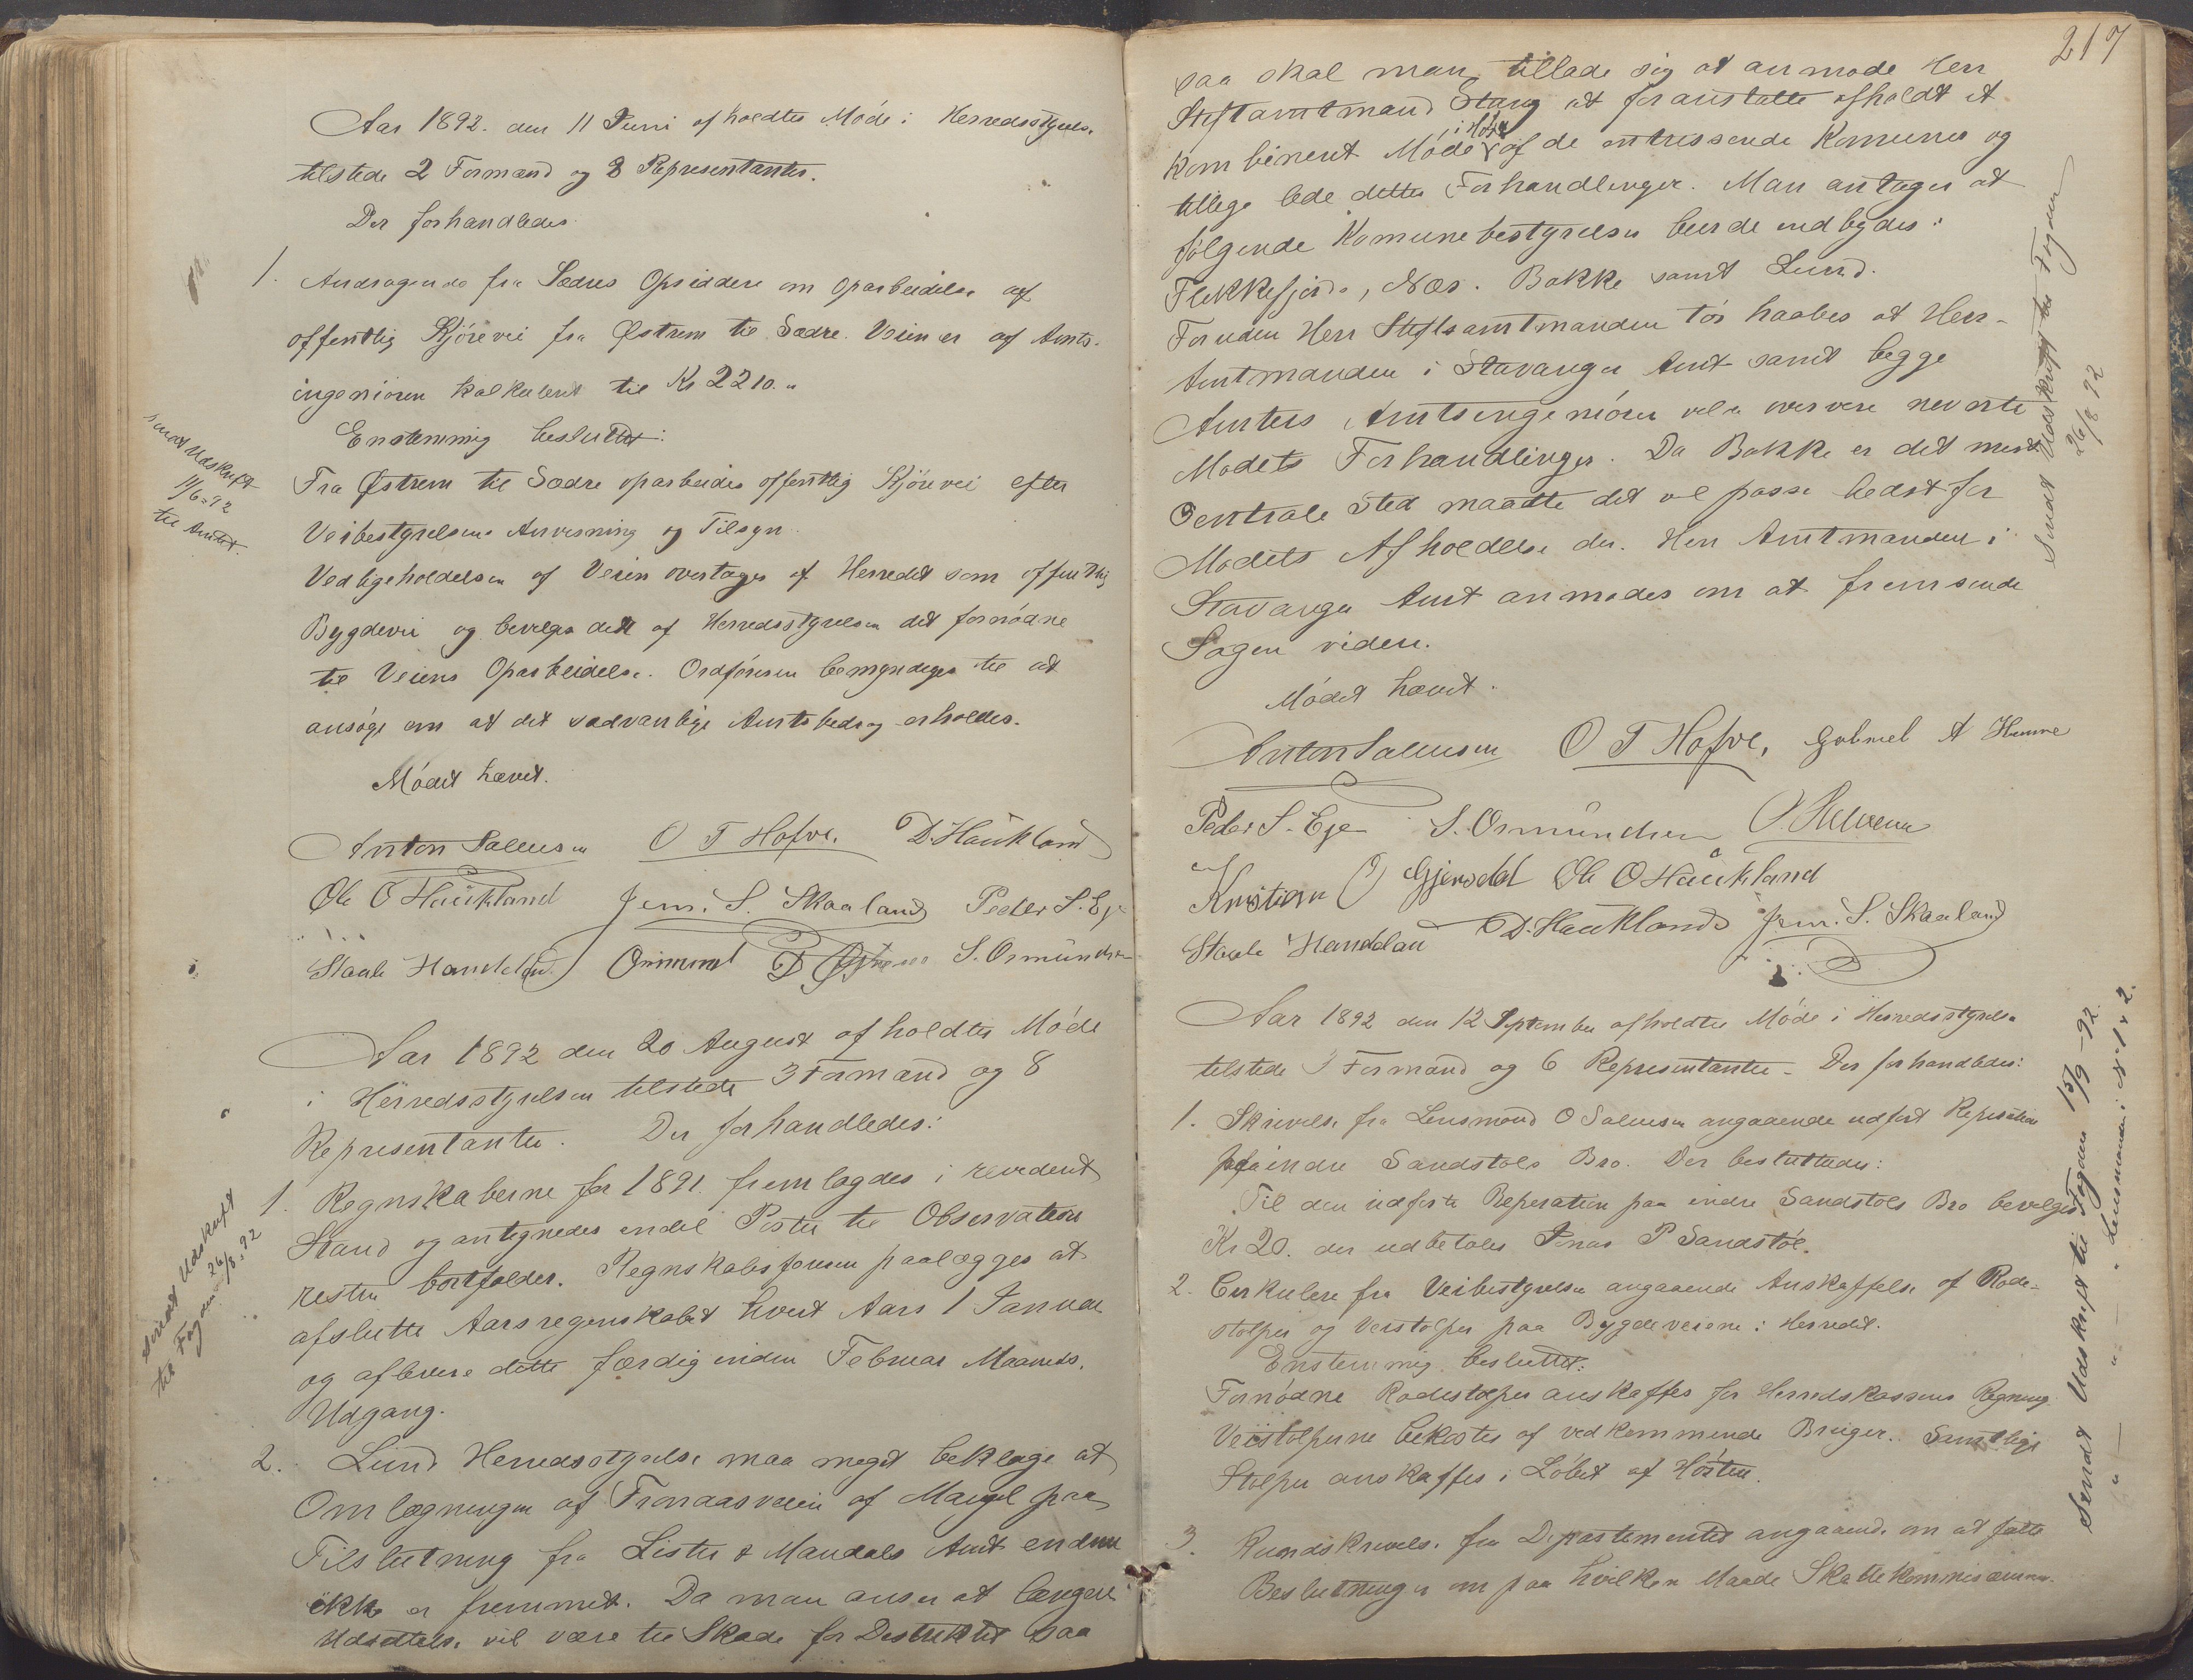 Aar 1892. den 11 Juni afholdtes Møde i Herredsstyrels.
tilstede 2 Formænd og 8 Representanter.
Der forhandledes
1. Andragende fra Sædres Opsiddere om Oparbeidelse af
offentlig Kjørevei fra Østrem til Sædre. Veien er af Amts-
ingeniøren kalkuleret til Kr 2210.
Enstemmig besluttet:
Fra Østrem til Sædre oparbeides offentlig Kjørevei efter
Veibestyrelsens Anvisning og Tilsyn
Vedligeholdelsen af Veien overtages af Herredet som offentlig
Bygdevei og bevilges dertil af Herredsstyrelsen det fornødne
til Veiens Oparbeidelse. Ordføreren bemyndiges til at
ansøge om at det sædvanlige Amtsbidrag erholdes.
Mødet hævet.
Anton Salvesen O T Hofve. D. Haukland
Ole O Haukland Jem. S. Skaaland Peder S. Eje
Staale Handeland Ommund P Østrem S. Osmundsen
sendt Udskrift
11/6-92
til Amtet.
Aar 1892 den 20 August afholdtes Møde
i Herredsstyrelsen tilstede 3 Formænd og 8
Representanter. Der forhandledes:
1. Regnskaberne for 1891 fremlagdes i revideret
Stand og antegnedes endel Poster til Observation
resten bortfalder. Regnskabsføreren paalægges at
afslutte Aarsregnskabet hvert Aars 1 Januar
og aflevere dette færdig inden Februar Maaneds
Udgang.
2. Lund Herredsstyrelse maa meget beklage at
Omlægningen af Tronaasveien af Mangel paa
Tilslutning fra Lister & Mandals Amt endnu
ikke er fremmet. Da man anser at længere
Udsættelse vil være til Skade for Destriktet saa
sendt Udskrift
til Fogden 26/8-92
217
saa skal man tillade sig at anmode Herr
Stiftamtmand Stang at foranstalte afholdt et
kombineret Møde af de intressende Komuner og
tillige lede dettes Forhandlinger. Man antager at
følgende Komunebestyrelser burde indbydes:
Flekkefjord, Næs. Bakke samt Lund.
Foruden Herr Stiftsamtmanden tør haabes at Herr
Amtmanden i Stavanger Amt samt begge
Amters Amtsingeniører vil oververe nevnte
Mødets Forhandlinger. Da Bakke er det mest
Centrale Sted maatte det vel passe bedst for
Mødets Afholdelse der. Herr Amtmanden i
Stavanger Amt anmodes om at fremsende
Sagen videre.
Mødet hævet.
Anton Salvesen O T Hofve, Gabriel A Hamre
Peder S. Eje S. Osmundsen
Kristian O Gjersdal Ole O Haukland
Staale Handeland D. Haukland Jem. S. Skaaland
Sendt Udskrift til Fogden
26/8 92
Aar 1892 den 12 September afholdtes Møde i Herredsstyrelse
tilstede 3 Formænd og 6 Representanter. Der forhandledes:
1. Skrivelse fra Lensmand O Salvesen angaaende udført Reperation
paa indre Sandstøls Bro. Der besluttedes:
Til den udførte Reperation paa indre Sandstøls Bro bevilges
Kr 20. der udbetales Jonas P Sandstøl.
2. Cirkulere fra Veibestyrelsen angaaende Anskaffelse af Rode-
stolper og Veistolper paa Bygdeveiene i Herredet.
Enstemmig besluttet:
Fornødne Rodestolper anskaffes for Herredskassens Regning
Veistolperne bekostes af vedkommende Bruger. Samtlige
Stolper anskaffes i Løbet af Høsten.
3. Rundskrivelse fra Departementet angaaende om at fatte
Beslutninger om paa hvilken Maade Skattekommisionen
Sendt Udskrift til Fogden 15/9-92.
" — " — " Lensmanden i No 1 & 2.